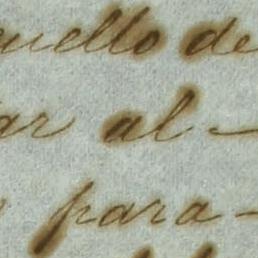 quello de
ar al -
para -